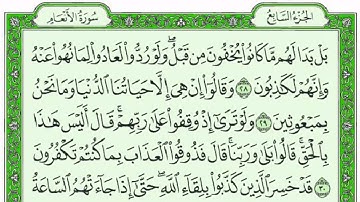 الجزء السابع
سورة الأنعام
بَلْ بَدَا لَهُم مَّا كَانُوا۟ يُخْفُونَ مِن قَبْلُ ۖ وَلَوْ رُدُّوا۟ لَعَادُوا۟ لِمَا نُهُوا۟ عَنْهُ
وَإِنَّهُمْ لَكَـٰذِبُونَ ٢٨ وَقَالُوٓا۟ إِنْ هِىَ إِلَّا حَيَاتُنَا ٱلدُّنْيَا وَمَا نَحْنُ
بِمَبْعُوثِينَ ٢٩ وَلَوْ تَرَىٰٓ إِذْ وُقِفُوا۟ عَلَىٰ رَبِّهِمْ ۚ قَالَ أَلَيْسَ هَـٰذَا
بِٱلْحَقِّ ۚ قَالُوا۟ بَلَىٰ وَرَبِّنَا ۚ قَالَ فَذُوقُوا۟ ٱلْعَذَابَ بِمَا كُنتُمْ تَكْفُرُونَ ٣٠
قَدْ خَسِرَ ٱلَّذِينَ كَذَّبُوا۟ بِلِقَآءِ ٱللَّهِ ۖ حَتَّىٰٓ إِذَا جَآءَتْهُمُ ٱلسَّاعَةُ